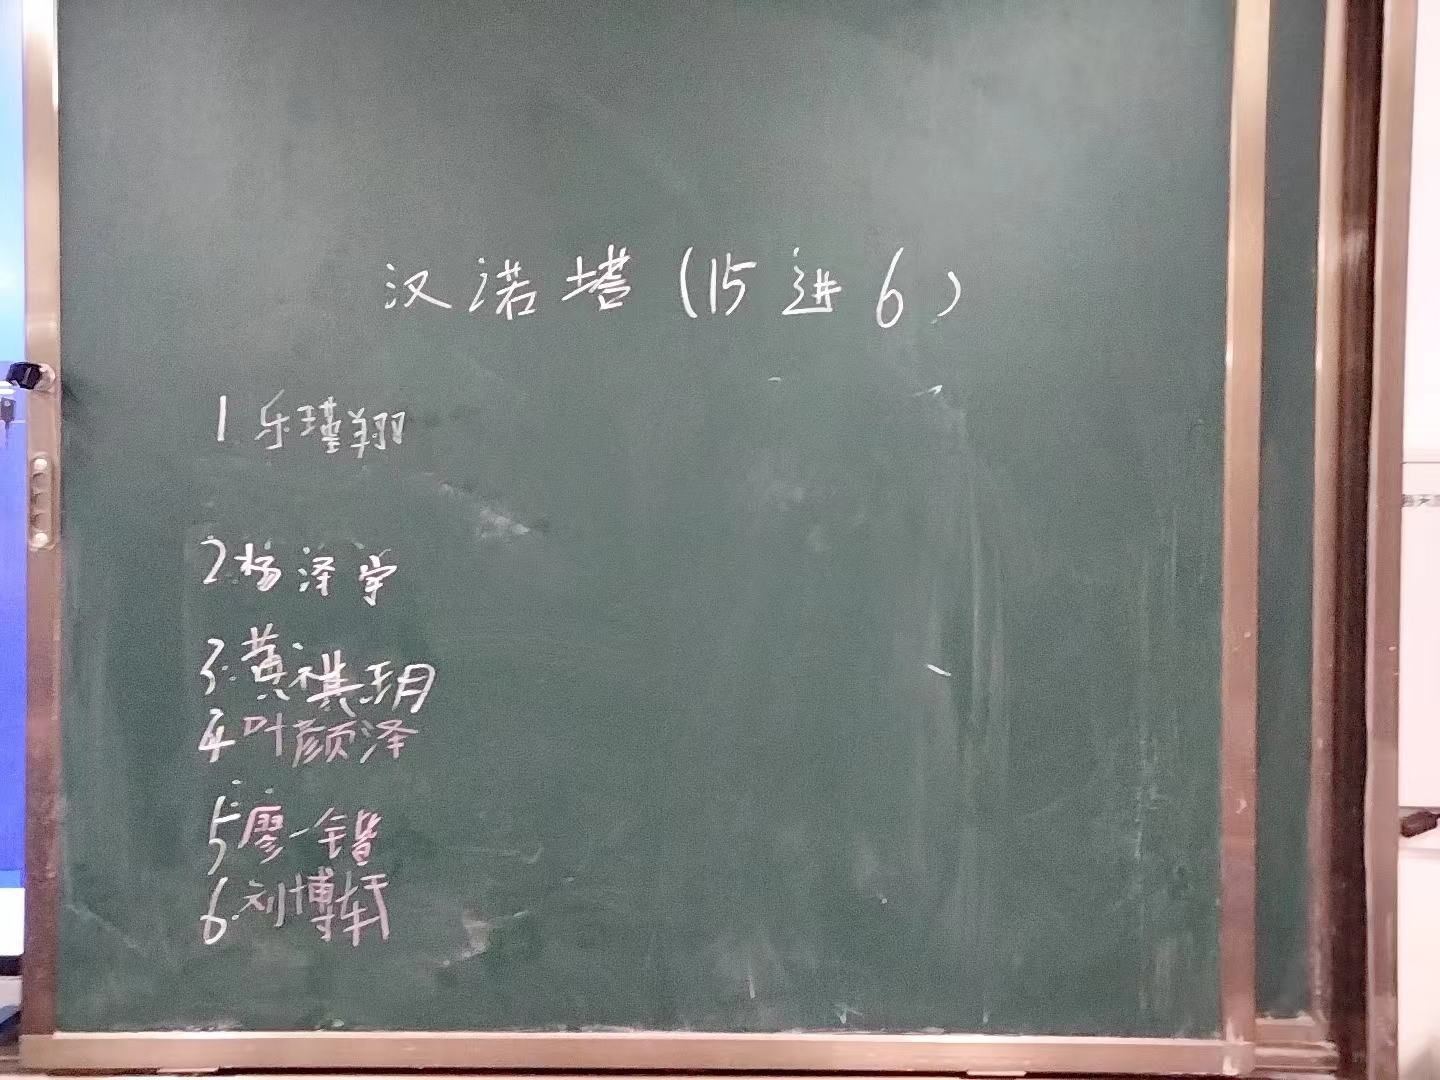 汉诺塔(15进6)
1 乐瑾翔
2.杨泽宇
3.黄祺玥
4.叶颜泽
5廖一锴
6.刘博轩